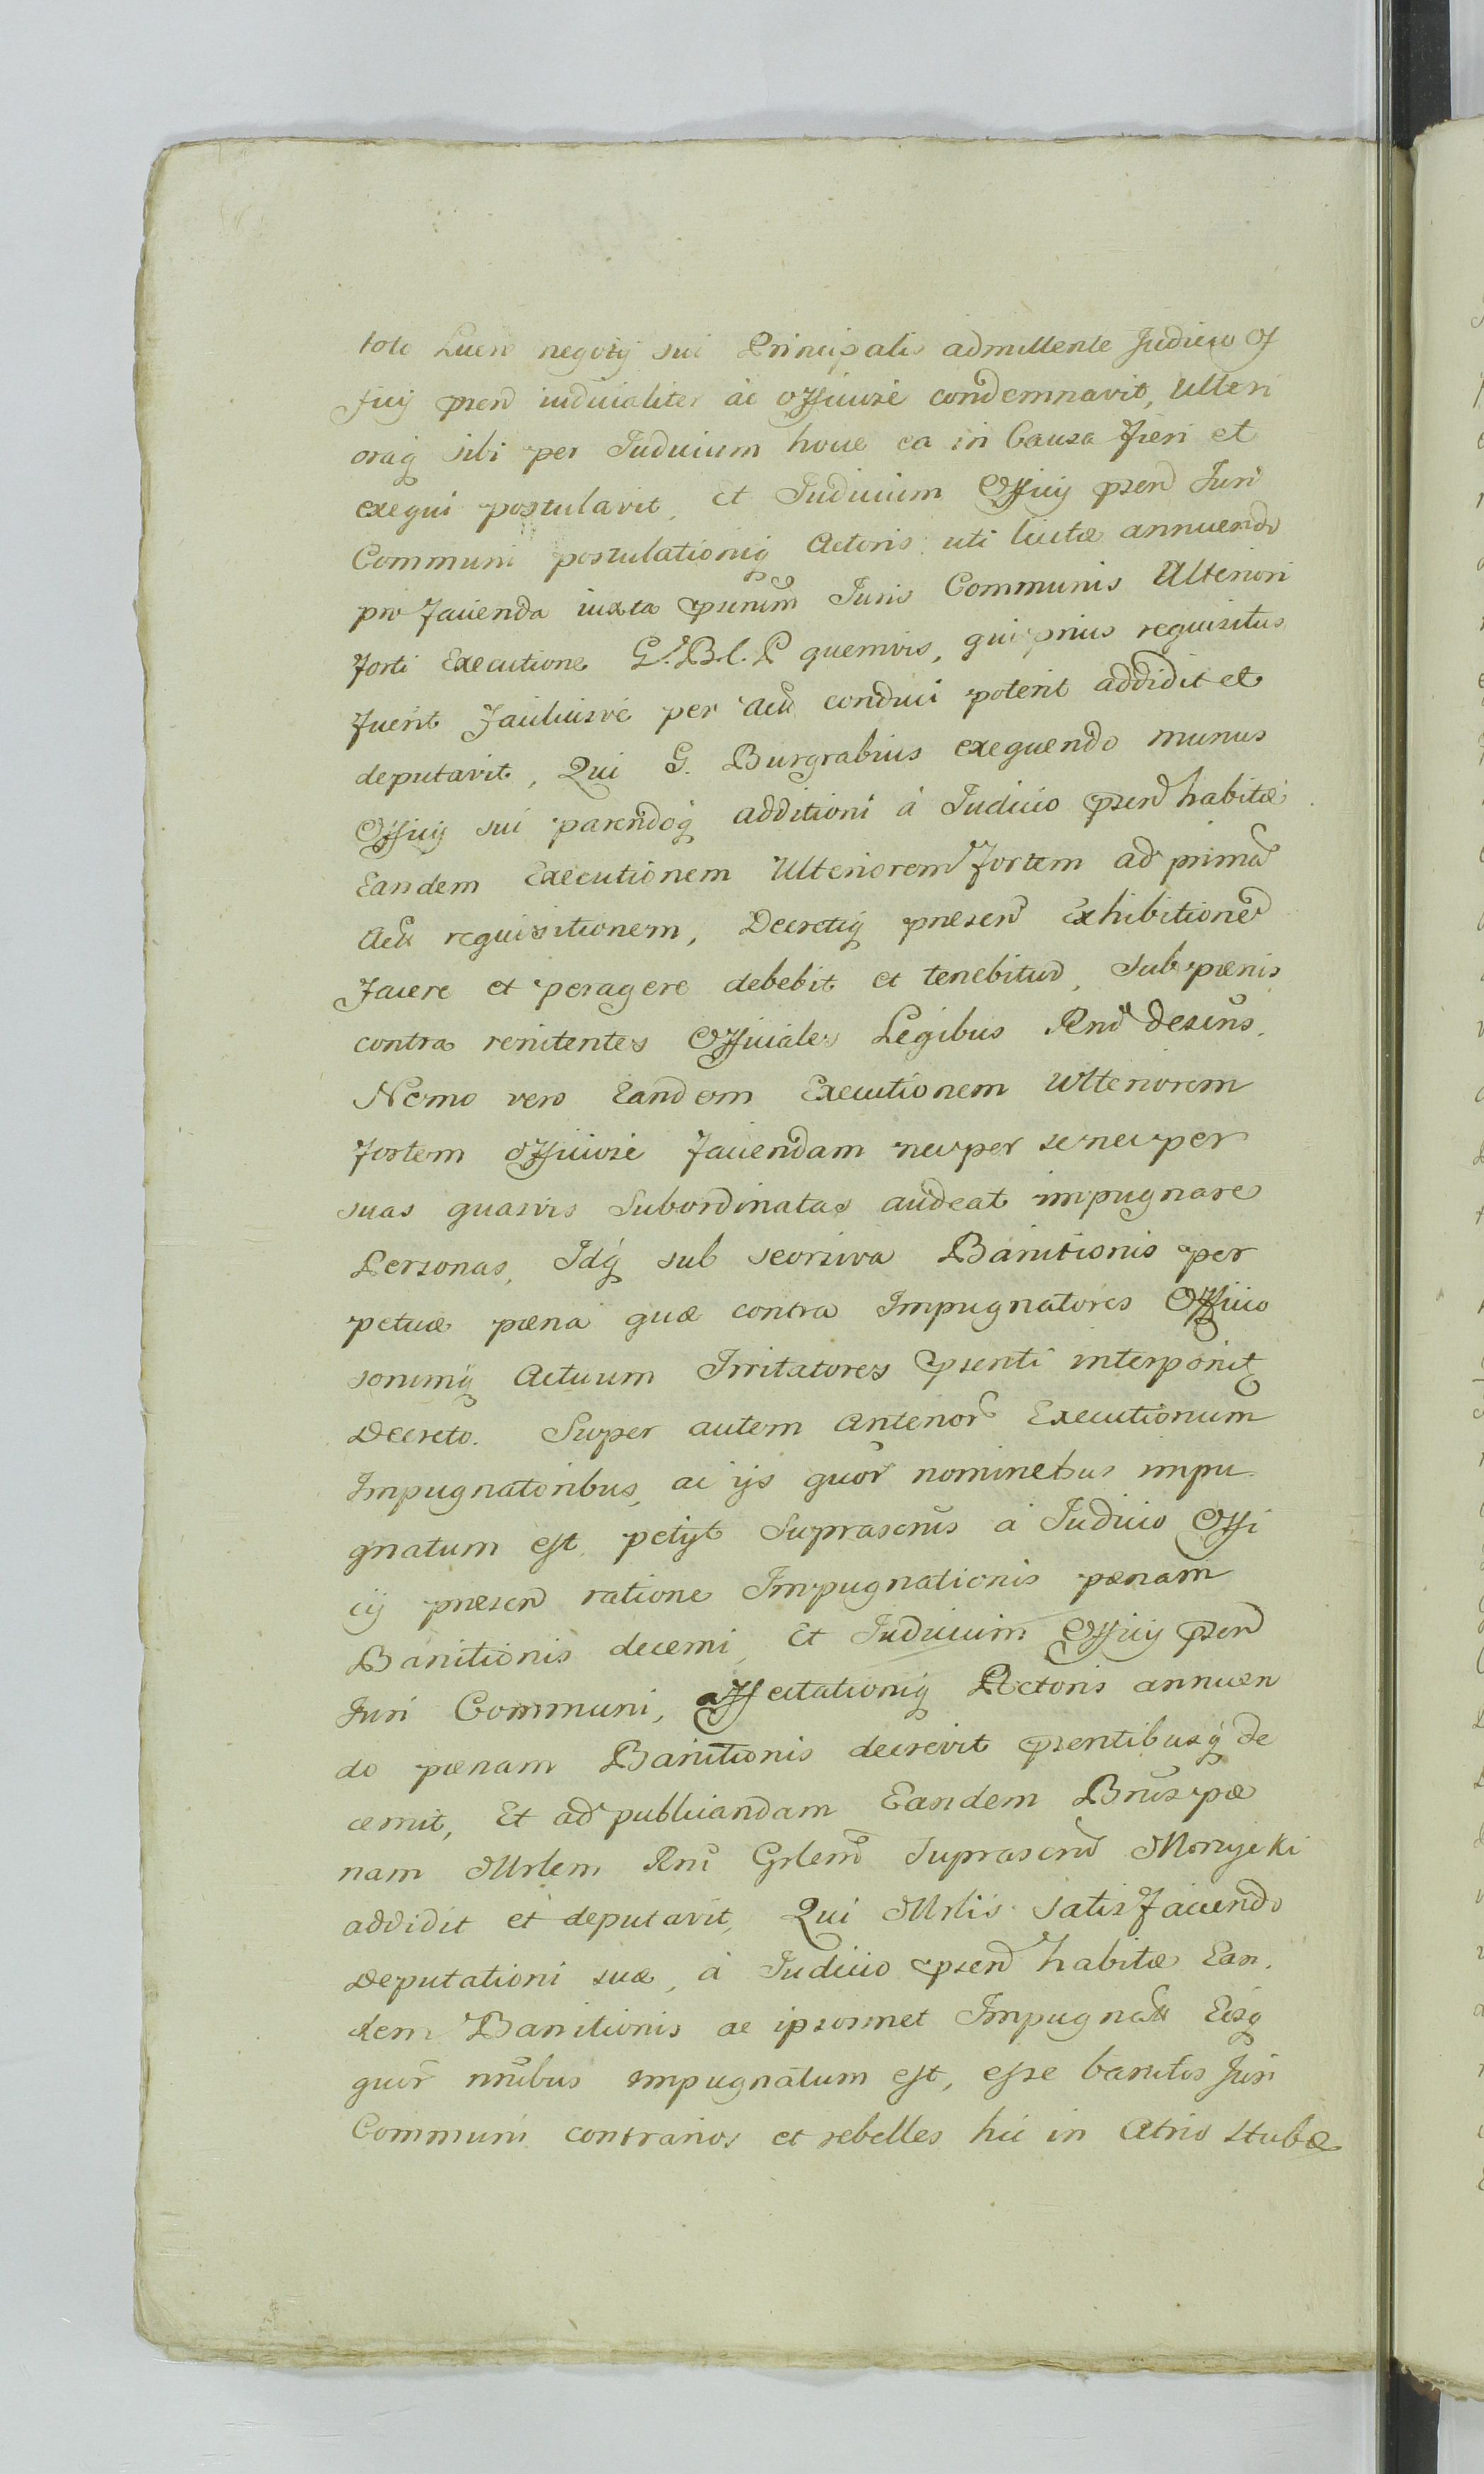 toto Lucro negotij sui Principalis admittente Judicio Of
ficij prsen iudicialiter ac officiose condemnavit, Ulteri
oraq sibi per Judicium hocce ea in Causa Fieri et
exequi postulavit, Et Judicium Officij prsen Juri
Communi postulationiq Actoris uti licitæ annuendo
pro facienda iuxta Juris Communis Ulteriori
forti Executione G. B. C. P quemvis, qui prius requisitus
fuerit faciliusve per Act conduci poterit addidit et
deputavit, Qui G. Burgrabius exequendo munus
Officij sui parendoq additioni á Judicio prsen habitæ
Eandem Executionem Ulteriorem fortem ad prima
Act requisitionem, Decretiq præsen Exhibitione
facere et peragere debebit et tenebitur, sub pœnis
contra renitentes Officiales Legibus Rni descris.
Nemo vero Eandem Executionem Ulteriorem
fortem officiose faciendam nec per se nec per
suas quasvis Subordinatas audeat impugnare
Personas, Idq sub seorsiva Banitionis per
petuæ pœna quæ contra Impugnatores Officio
sorumq Actuum Irritatores prsenti interponit
Decreto. Super autem Anterior Executionum
Impugnatoribus, ac ijs quor nominebus impu
gnatum est petijt Suprascrus á Judicio Offi
cij præsen ratione Impugnationis pœnam
Banitionis decerni, Et Judicium Officij prsen
Juri Communi, affectationiq Actoris annuen
do pœnam Banitionis decrevit prsentibusq de
cernit, Et ad publicandam Eandem Bnis pœ
nam Mrlem Rni Grlem Suprascrm
addidit et deputavit, Qui Mrlis satisfaciendo
Deputationi suæ, á Judicio prsen habitæ Ean
dem Banitionis ac ipsosmet Impugnat Eosq
quor nnibus impugnatum est, esse banitos Juri
Communi contrarios et rebelles hic in Atrio Stubæ